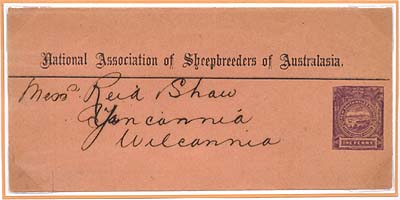 National Association of Sheepbreeders of Australasia.
Messrs Reid Shaw
Yancannia
Wilcannia
ONE PENNY